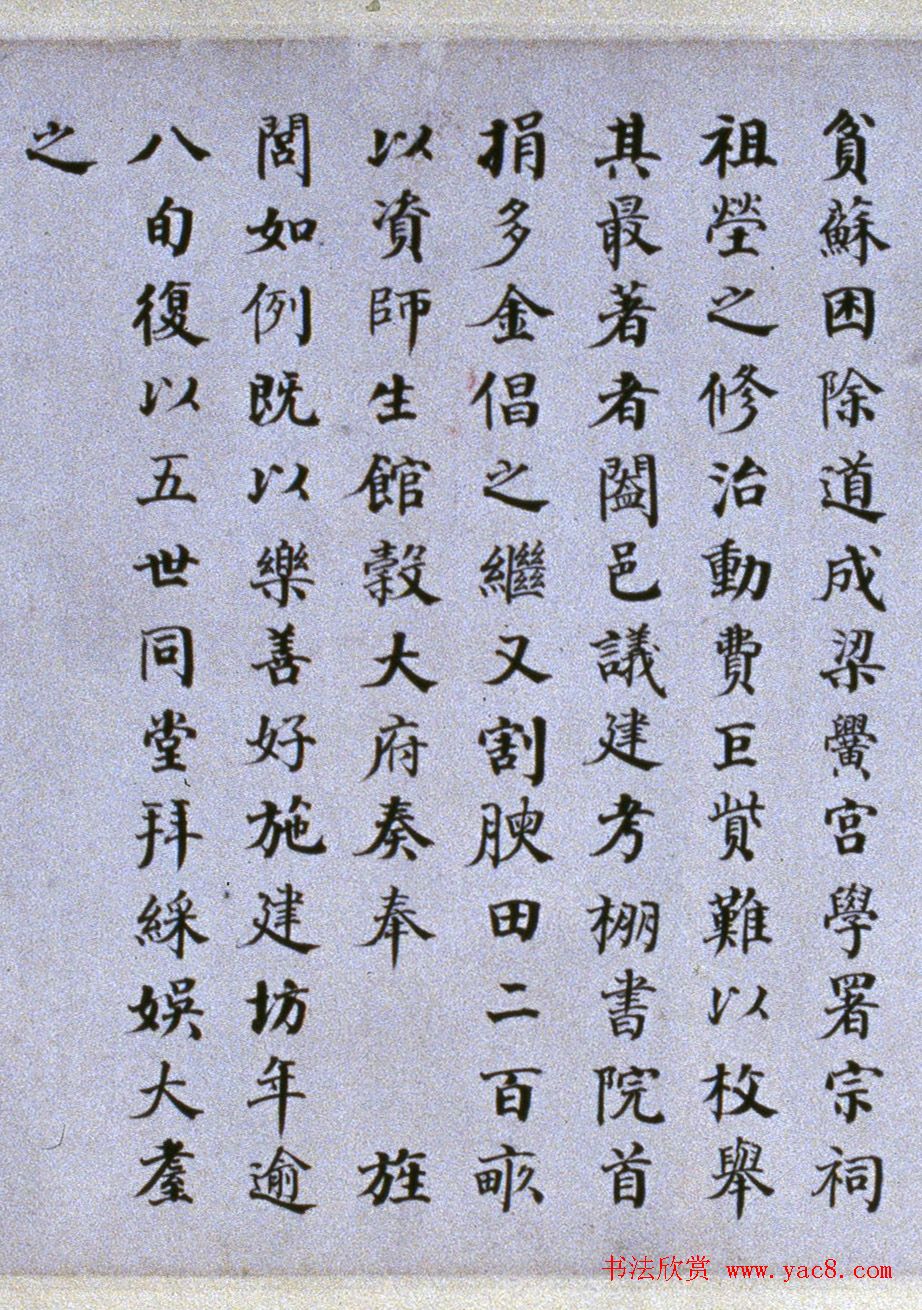 貧蘇困除道成梁黌宮學署宗祠
祖塋之修治動費巨貲難以枚舉
其最著者闔邑議建考棚書院首
捐多金倡之繼又割腴田二百畝
以資師生館穀大府奏奉 旌
閭如例既以樂善好施建坊年逾
八旬復以五世同堂拜綵娛大耋
之
书法欣赏 www.yac8.com